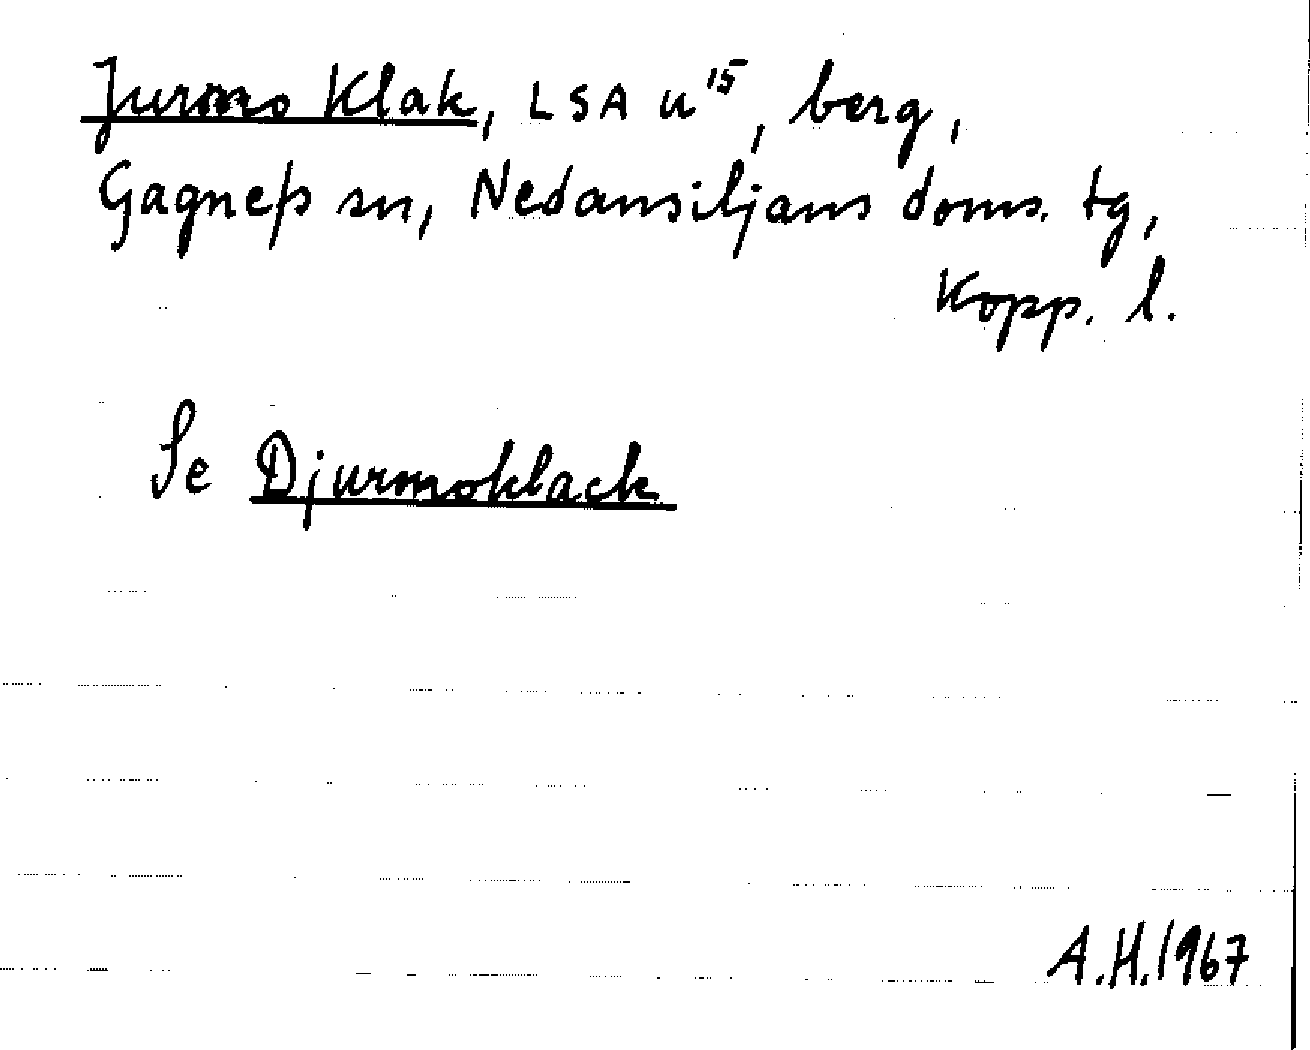 Jurmo Klak, LSA u¹⁵, berg,
Gagnefs sn, Nedansiljans doms. tg,
Kopp. l.
Se Djurmoklack
A.H. 1967